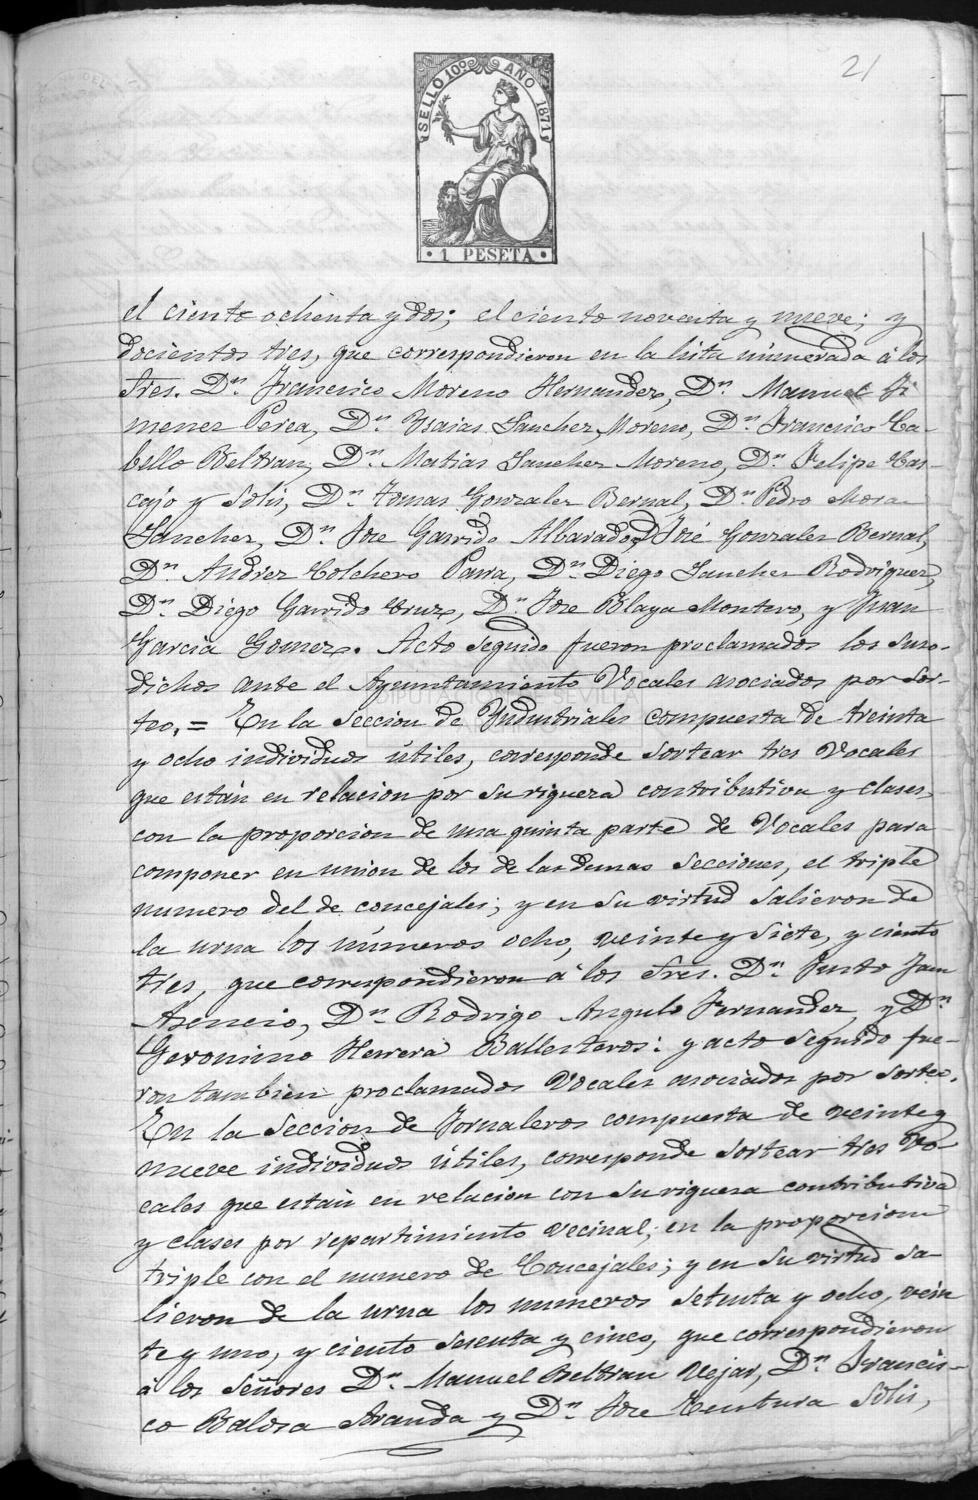 21
SELLO 10º AÑO 1871
· 1 PESETA ·
el ciento ochenta y dos; el ciento noventa y nueve; y
docientos tres, que correspondieron en la lista númerada á los
Sres. Dn. Francisco Moreno Hernandez, Dn. Manuel Ji
menez Perea, Dn. Ysaias Sanchez Moreno, Dn. Francisco Ca-
bello Beltran, Dn. Matias Sanchez Moreno, Dn. Felipe Cas-
cajo y Solis, Dn. Tomas Gonzalez Bernal, Dn. Pedro Mora
Sanchez, Dn. Jose Garrido Albarado, José Gonzalez Bernal,
Dn. Andrez Colchero Parra, Dn. Diego Sanchez Rodriguez,
Dn. Diego Garrido Cruz, Dn. Jose Blaya Montero, y Juan
Garcia Gomez. Acto seguido fueron proclamados los suso-
dichos ante el Ayuntamiento Vocales asociados por sor-
teo, = En la Seccion de Yndustriales compuesta de treinta
y ocho individuos útiles, corresponde sortear tres Vocales
que están en relacion por su riqueza contributiva y clases,
con la proporcion de una quinta parte de Vocales para
componer en union de los de las demas secciones, el triple
numero del de concejales; y en su virtud salieron de
la urna los números ocho, veinte y siete, y ciento
tres, que correspondieron á los Sres. Dn. Justo Jam
Asencio, Dn. Rodrigo Angulo Fernandez, y Dn.
Geronimo Herrera Ballesteros: y acto seguido fue-
ron tambien proclamados Vocales asociados por sorteo.
En la Seccion de Jornaleros compuesta de veinte y
nueve individuos útiles, corresponde sortear tres Vo-
cales que están en relacion con su riqueza contributiva
y clases por repartimiento vecinal, en la proporcion
triple con el numero de Concejales; y en su virtud sa-
lieron de la urna los numeros setenta y ocho, vein
te y uno, y ciento sesenta y cinco, que correspondieron
á los Señores Dn. Manuel Beltran Vejar, Dn. Francis-
co Balosa Aranda y Dn. Jose Ventura Solis,